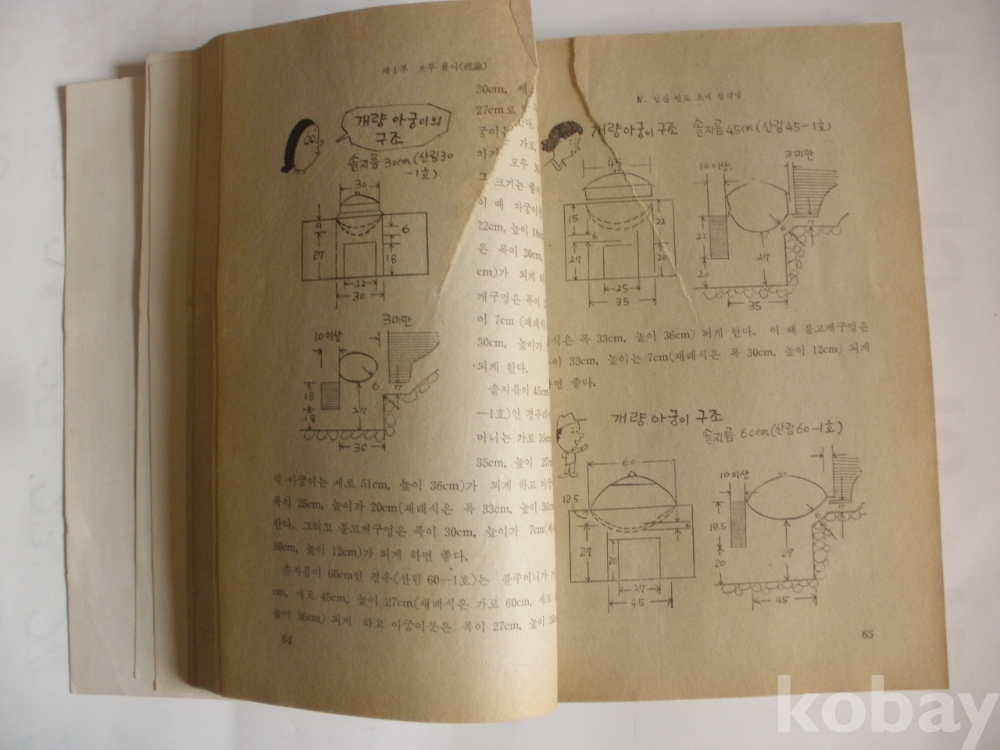 제1부 모두 풀이(總論)
개량 아궁이의
구조
솥지름 30cm(산림30
-1호)
30
9
27
6
18
22
30
3미만
10이상
18
18
6
17
27
30
30cm, 세
27cm로
이 때 아궁이
22cm, 높이 18cm
은 폭이 30cm,
cm)가 되게 하
개구멍은 폭이
이 7cm (재래식
30cm, 높이가
되게 한다.
솥지름이 45cm
—1호)인 경우
머니는 가로 35cm
35cm, 높이 27cm
식 아궁이는 세로 51cm, 높이 36cm)가 되게 하고 아궁
폭이 25cm, 높이가 20cm(재래식은 폭 33cm, 높이 36cm
한다. 그리고 불고개구멍은 폭이 30cm, 높이가 7cm(재
30cm, 높이 12cm)가 되게 하면 좋다.
솥지름이 60cm인 경우(산림 60—1호)는 불주머니가
cm, 세로 45cm, 높이 27cm(재래식은 가로 60cm, 세로
높이 36cm) 되게 하고 아궁이문은 폭이 27cm, 높이 20cm
64
Ⅳ. 임산 연료 소비 절약법
개량 아궁이 구조 솥지름 45cm(산림45-1호)
45
15
27
6
22
20
25
35
3미만
10이상
22
20
6
17
27
35
식은 폭 33cm, 높이 36cm) 되게 한다. 이 때 불고개구멍은
이 33cm, 높이는 7cm(재래식은 폭 30cm, 높이 12cm) 되게
면 좋다.
개량 아궁이 구조
솥지름 60cm(산림60-1호)
60
18.5
27
20
27
45
10이상
18.5
20
27
45
65
kobay